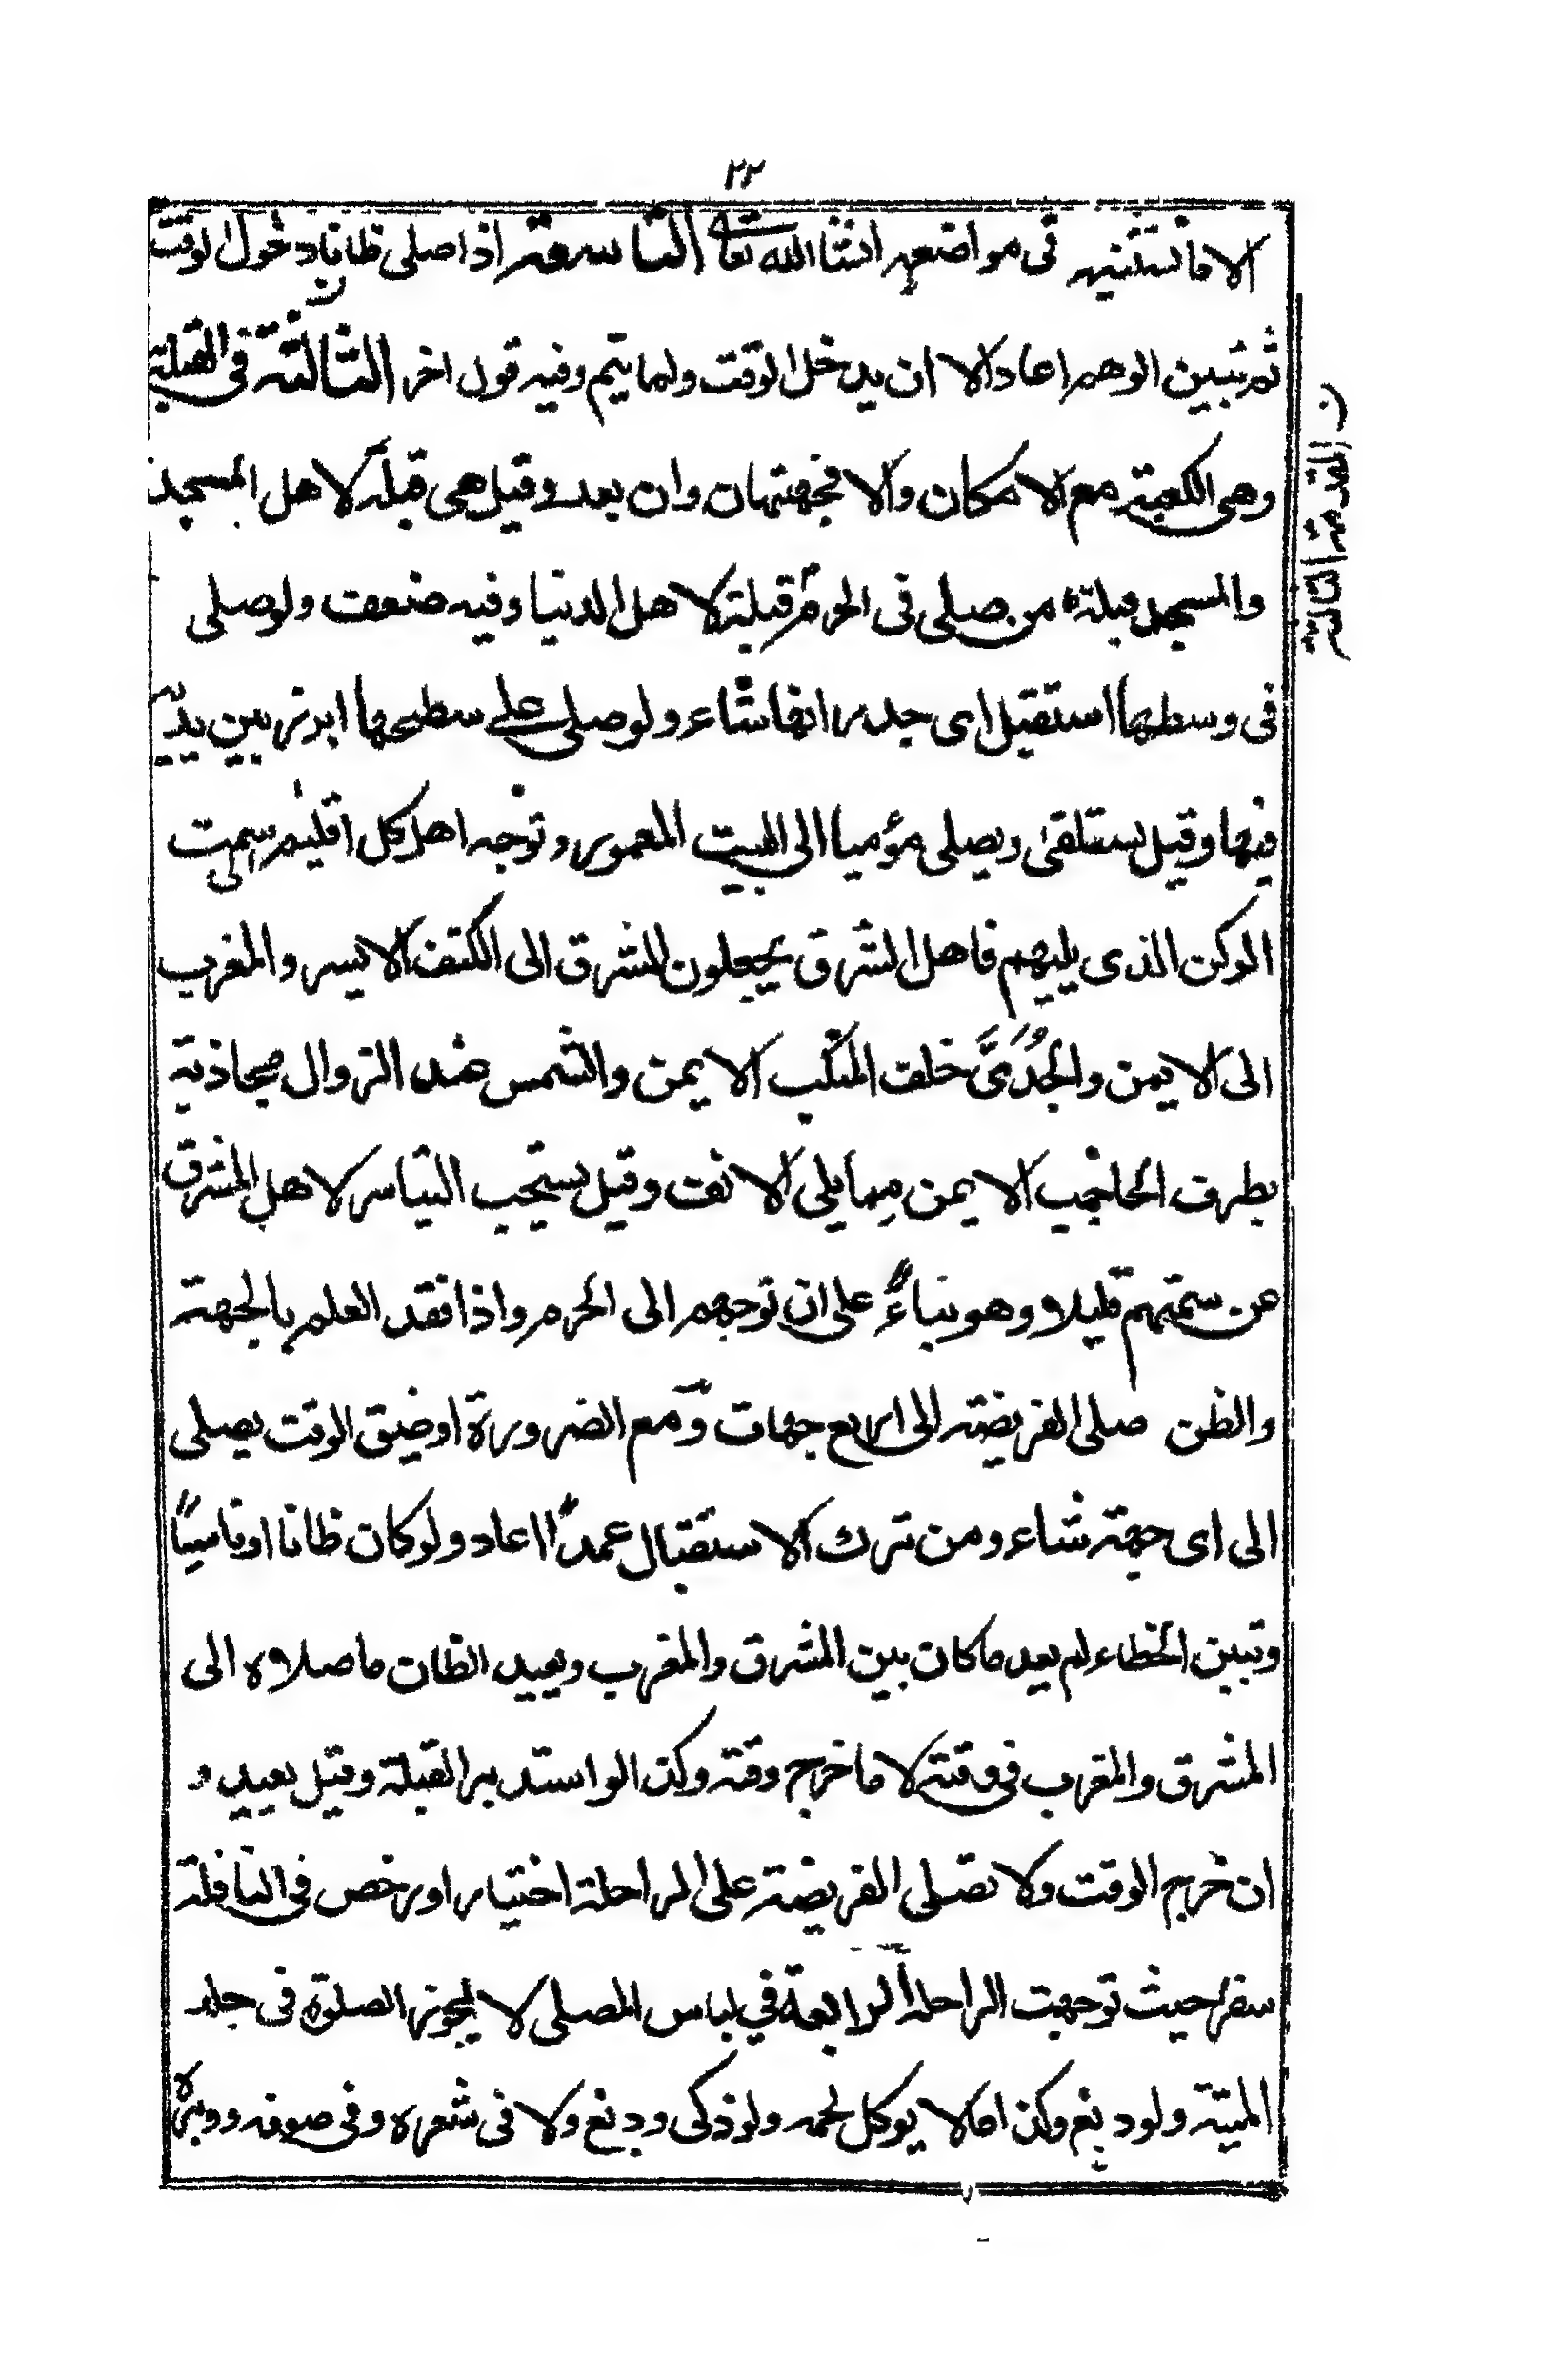 ٢٢
الا ما نستثنيه فى مواضعه انشا الله تعالى التاسعة اذا صلى ظانا دخول الوقت
ثم تبين الوهم اعاد الا ان يدخل الوقت ولما يتم وفيه قول اخر الثالثة فى القبلة
وهى الكعبة مع الامكان والا فجهتها وان بعد وقيل هى قبلة لاهل المسجد
والمسجد قبلة من صلى فى الحرم قبلة لاهل الدنيا وفيه ضعف ولو صلى
فى وسطها استقبل اى جدرانها شاء ولو صلى على سطحها ابرز بين يديه
فيها وقيل يستلقى ويصلى مؤميا الى البيت المعمور وتوجه اهل كل اقليم الى سمت
الركن الذى يليهم فاهل المشرق يجعلون المشرق الى الكتف الايسر والمغرب
الى الايمن والجُدَىَّ خلف المنكب الايمن والشمس عند الزوال محاذية
بطرف الحاجب الايمن مما يلى الانف وقيل يستحب التياسر لاهل المشرق
عن سمتهم قليلا وهو بناءً على ان توجههم الى الحرم واذا فقد العلم بالجهة
والظن صلى الفريضة الى اربع جهات ومع الضرورة او ضيق الوقت يصلى
الى اى جهة شاء ومن ترك الاستقبال عمدًا اعاد ولو كان ظانا او ناسيًا
وتبين الخطاء لم يعد ما كان بين المشرق والمغرب ويعيد الظان ما صلاه الى
المشرق والمغرب فى وقته لا ما خرج وقته وكذا لو استدبر القبلة وقيل يعيد و
ان خرج الوقت ولا تصلى الفريضة على الراحلة اختيارا ورخص فى النافلة
سفرا حيث توجهت الراحلة الرابعة في لباس المصلى لا يجوز الصلوة فى جلد
الميتة ولو دبغ وكذا ما لا يوكل لحمه ولو ذكى ودبغ ولا فى شعره وفى صوفه ووبره
المقدمة الثالثة